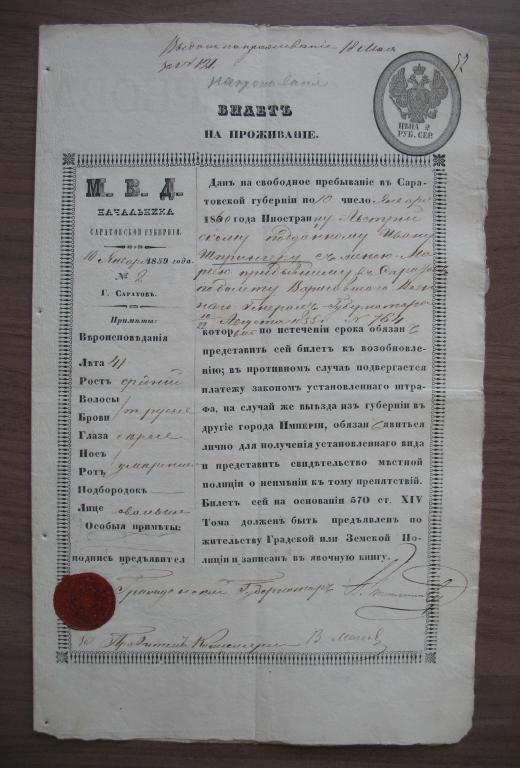 Выданъ на проживаніе 18 Мая
52
БИЛЕТЪ
НА ПРОЖИВАНІЕ.
ЦѢНА 2
РУБ. СЕР.
М. В. Д.
НАЧАЛЬНИКА
САРАТОВСКОЙ ГУБЕРНІИ.
10 Января 1859 года.
№ 2
Г. Саратовъ.
Примѣты:
Вѣроисповѣданія
Лѣта 41
Ростъ средній
Волосы
Брови русые
Глаза сѣрые
Носъ
Ротъ умѣренные
Подбородокъ
Лице овальное
Особыя примѣты:
подпись предъявител
Данъ на свободное пребываніе въ Сара-
товской губерніи по 10 число Января
1860 года Иностранцу Австрій
скому подданному Ивану
Шпрингеру съ женою Ма-
ріею прибывшему въ Саратовъ
по билету Варшавскаго Воен
наго Генералъ Губернатора
Августа № 764
котор по истеченіи срока обязан
представить сей билетъ къ возобновле-
нію; въ противномъ случаѣ подвергается
платежу закономъ установленнаго штра-
фа, на случай же выѣзда изъ губерніи въ
другіе города Имперіи, обязан явиться
лично для полученія установленнаго вида
и представить свидѣтельство мѣстной
полиціи о неимѣніи къ тому препятствій.
Билетъ сей на основаніи 570 ст. XIV
Тома долженъ быть предъявленъ по
жительству Градской или Земской По-
лиціи и записанъ въ явочную книгу.
Гражданскій Губернаторъ
Правитель Канцеляріи